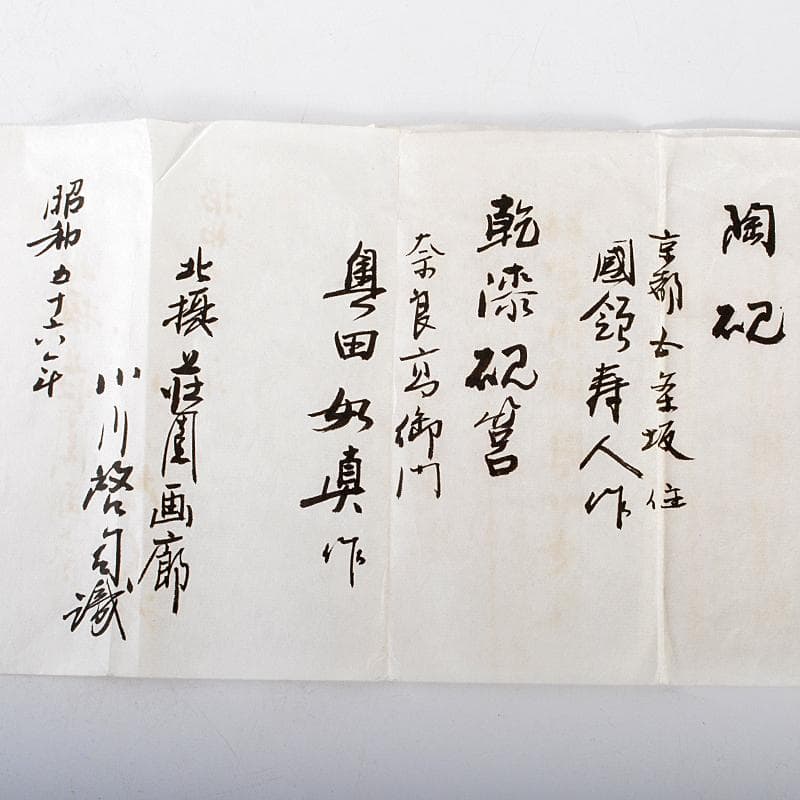 陶硯
京都五条坂住
國領寿人作
乾漆硯筥
奈良高御門
奥田如真作
北摂荘園画廊
小川啓司識
昭和五十六年